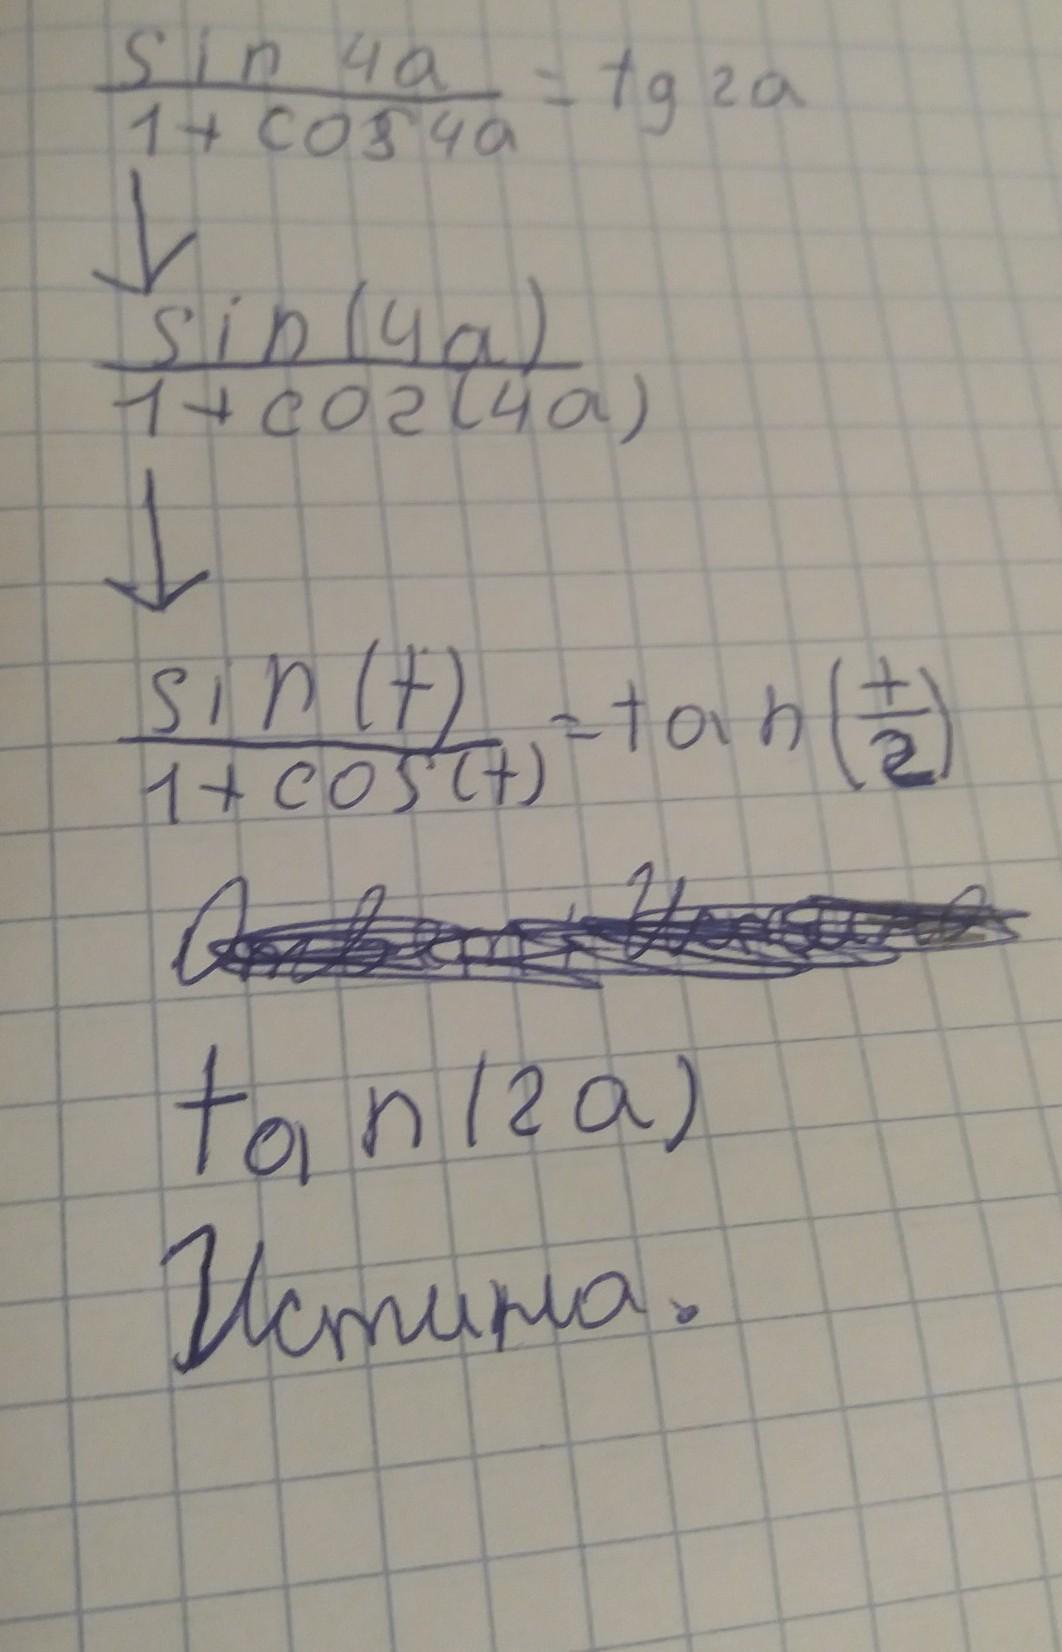 sin 4a
1 + cos 4a = tg 2a
sin(4a)
1 + co2(4a)
sin(t)
1 + cos(t) = tan(t/2)
tan(2a)
Истина.